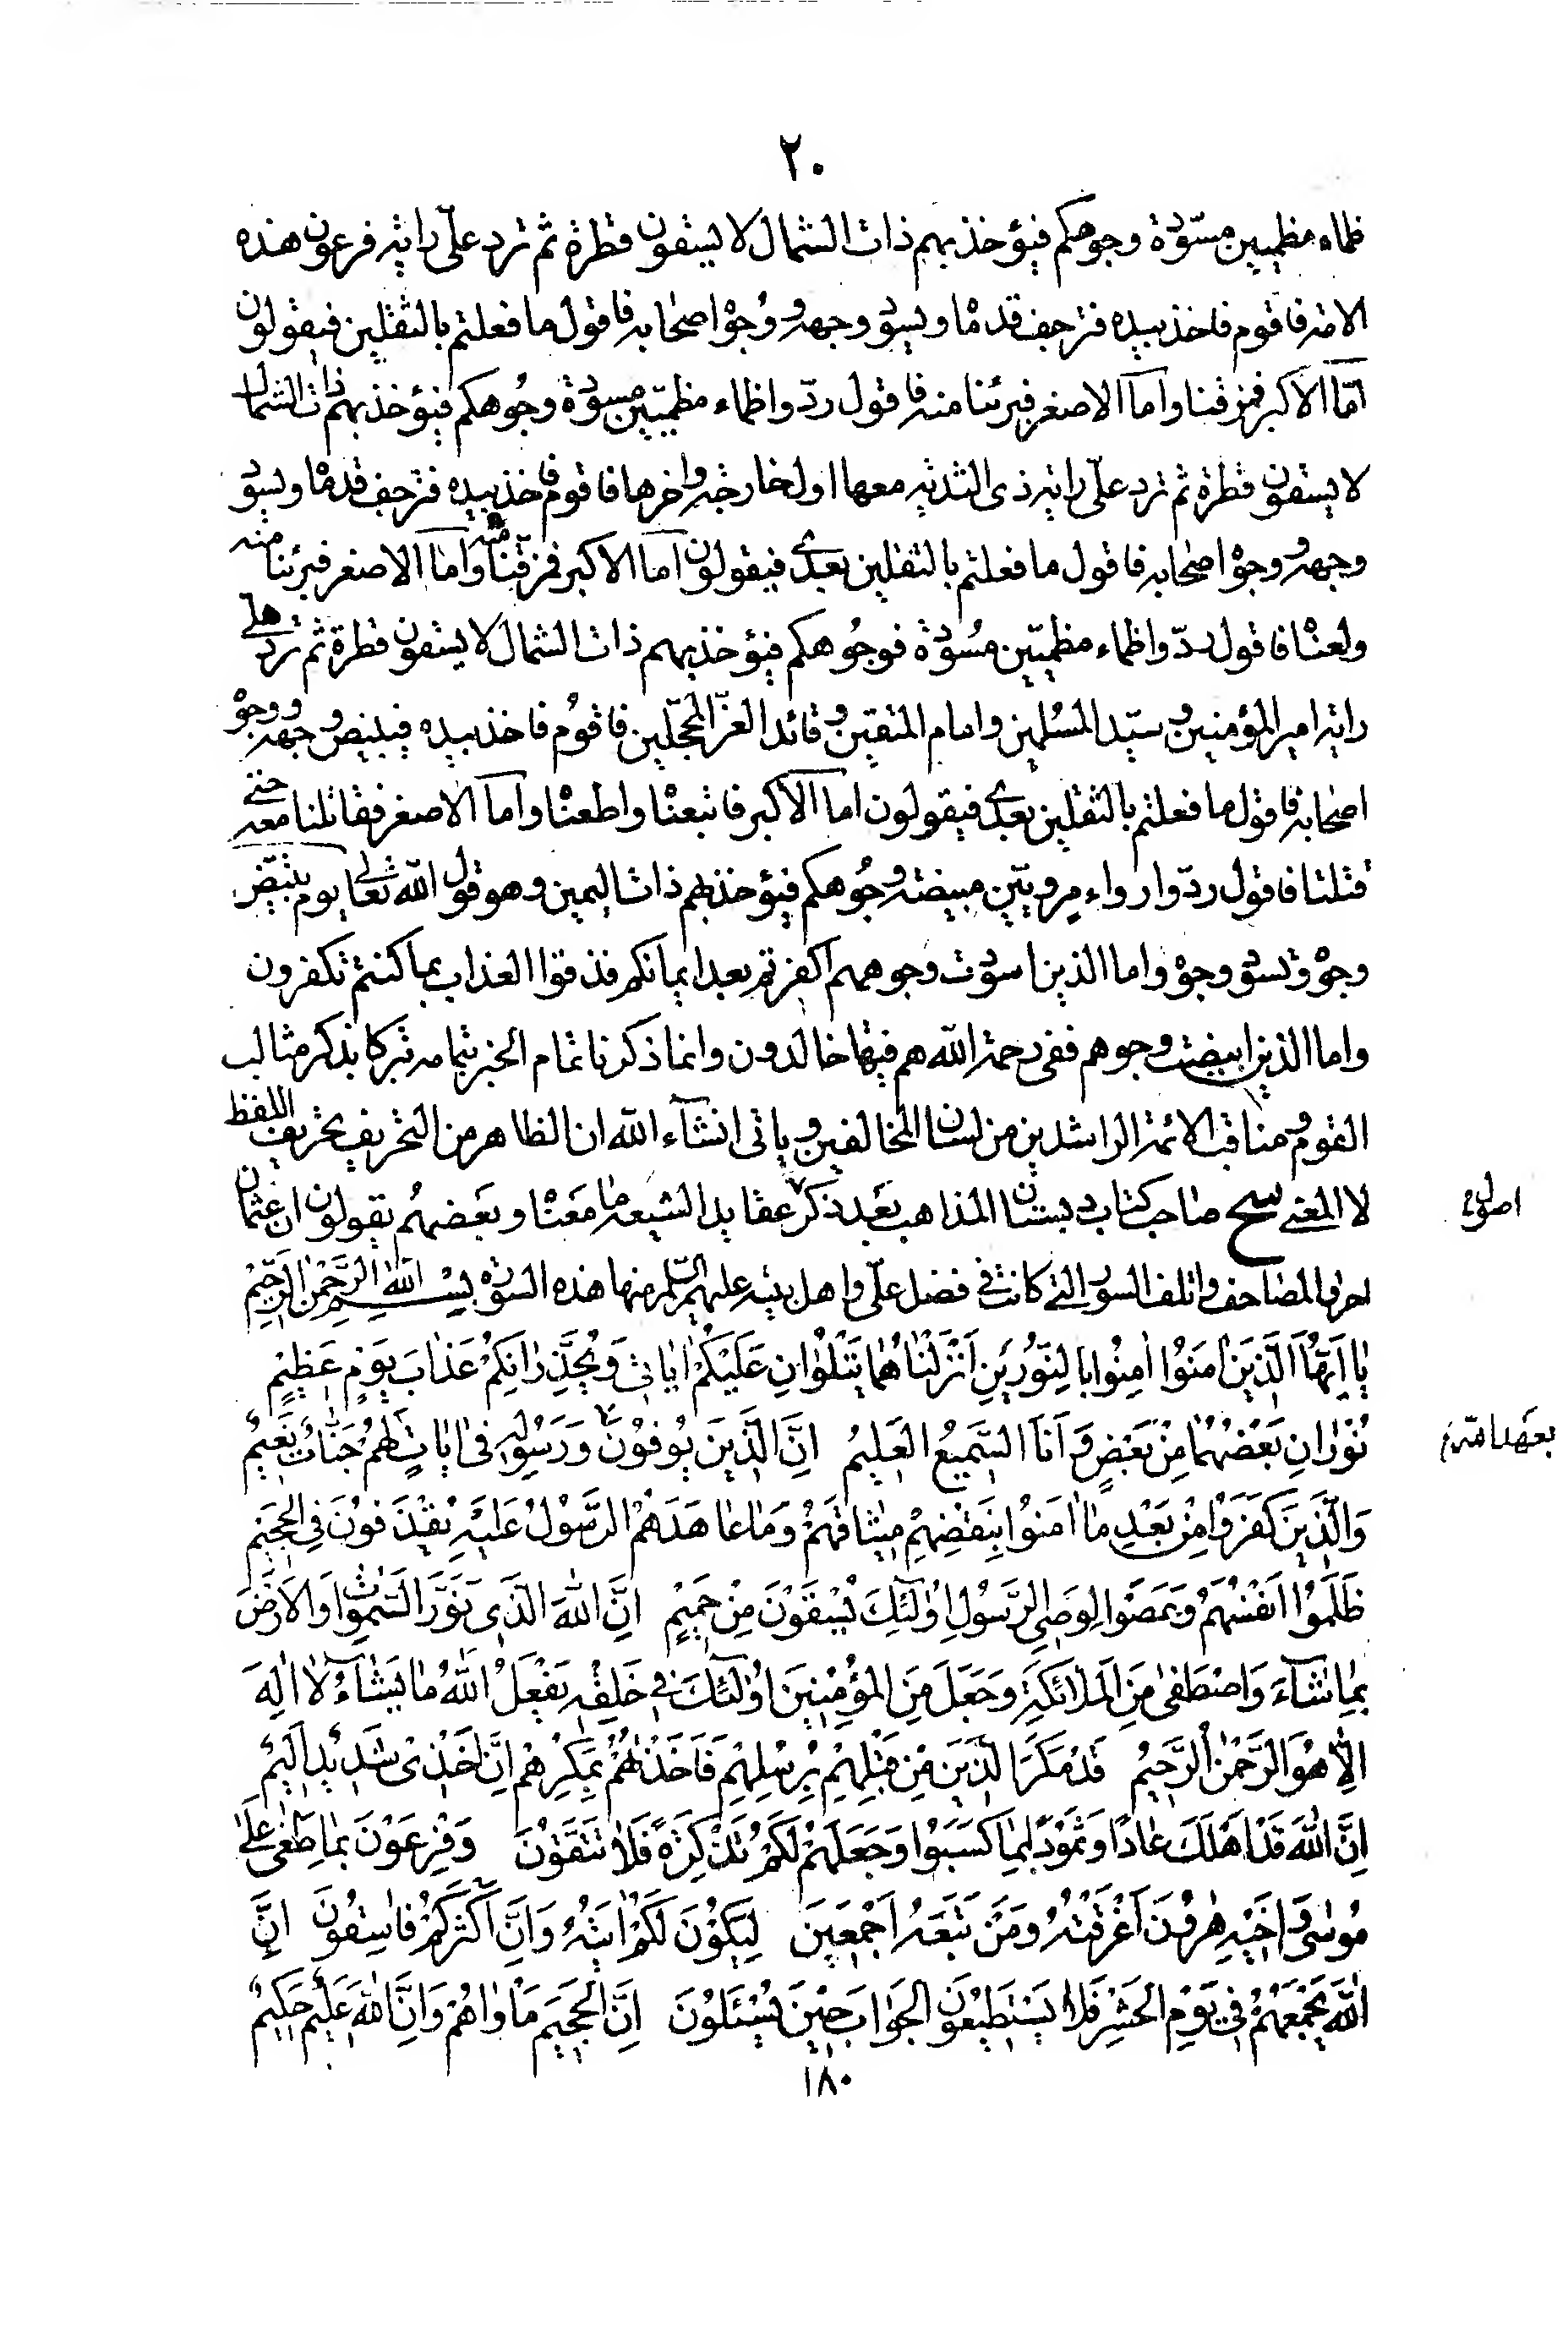 ٢٠
ظماء مظمئين مسوّدة وجوهكم فيؤخذ بهم ذات الشمال لا يسقون قطرة ثم ترد علىّ راية فرعون هذه
الامة فاقوم فاخذ بيده فترجف قدماه ويسود وجهه ووجوه اصحابه فاقول ما فعلتم بالثقلين فيقولون
امّا الاكبر فمزقنا واما الاصغر فبرئنا منه فاقول ردّوا ظماء مظمئين مسودة وجُوهكم فيؤخذ بهم ذات الشمال
لا يسقون قطرة ثم ترد علىّ راية ذى الثدية معها اول خارجة واخرها فاقوم فاخذ بيده فترجف قدماه ويسود
وجهه ووجوه اصحابه فاقول ما فعلتم بالثقلين بعدى فيقولون اما الاكبر فمزقنا منه واما الاصغر فبرئنا منه
ولعناه فاقول ردّوا ظماء مظمئين مُسودة فوجُوهكم فيؤخذ بهم ذات الشمال لا يسقون قطرة ثم ترد على
راية امير المؤمنين وسيّد المسلمين وامام المتقين وقائد الغرّ المحجّلين فاقوم فاخذ بيده فيبيض وجهه ووجوه
اصحابه فاقول ما فعلتم بالثقلين بعدى فيقولون اما الاكبر فاتبعناه واطعناه واما الاصغر فقاتلنا معه حتى
قتلنا فاقول ردّوا رواء مرويّين مبيضة وجُوهكم فيؤخذ بهم ذات اليمين وهو قول الله تعالى يوم تبيضّ
وجوه وتسود وجوه واما الذين اسودت وجوههم اكفرتم بعد ايمانكم فذوقوا العذاب بما كنتم تكفرون
واما الذين ابيضت وجوههم ففى رحمة الله هم فيها خالدون وانما ذكرنا تمام الخبر بتمامه تبركا بذكر مثالب
القوم ومناقب الائمة الراشدين من لسان المخالفين وياتى انشآء الله ان الظاهر من التحريف تحريف اللفظ
لا المعنى سح صاحب كتاب دبستان المذاهب بعد ذكر عقايد الشيعة ما معناه وبعضهم يقولون ان عثمان
احرق المصاحف واتلف السور التى كانت فى فضل علىّ واهل بيته عليهم السّلم منها هذه السورة بِسْمِ اللهِ الرَّحْمنِ الرَّحِيْمِ
يٰا اَيُّهَا الَّذِيَن اٰمَنُوا اٰمِنُوا بِالنّوُرَيْنِ اَنْزَلْنٰاهُمٰا يَتْلُوٰانِ عَلَيْكُمْ اٰيٰاتى وَيُحَذِّرٰانِكُمْ عَذٰابَ يَوْمٍ عَظيٖمٍ
نُوْرٰانِ بَعْضُهُمٰا مِنْ بَعْضٍ وَ اَنَا السَّميٖعُ العَليٖمُ اِنَّ الَّذيٖنَ يوُفوُنَ وَرَسُوْلِهِ فى اٰيٰاتٍ لَهُمْ جَنّاتُ نَعيٖمٍ
وَالَّذيٖنَ كَفَرَوُا مِنْ بَعْدِ مٰا اٰمَنوُا بِنَقْضِهِمْ ميٖثاقَهُمْ وَمٰا عٰاهَدَهُمْ الرَّسُوْلُ عَلَيْهِ يُقْذَفوُنَ فِى الْجَحيٖمِ
ظَلَمَوُا اَنْفُسَهُمْ وَ عَصَوْا لِوَصِىّ الرَّسوُلِ اُوْلٰئِكَ يُسْقَوْنَ مِنْ حَميٖمٍ اِنَّ اللهَ الَّذى نَوَّرَ السَّمٰوٰاتِ وَالْاَرْضَ
بِمٰا شٰاءَ وَاصْطَفىٰ مِنَ الْمَلائِكَةِ وَجَعَلَ مِنَ الْمُؤْمِنيٖنَ اُوْلٰئِكَ فى خَلْقِهِ يَفْعَلُ اللهُ مٰا يَشٰاءُ لٰا اِلٰهَ
اِلّٰا هُوَ الرَّحْمٰنُ الرَّحيٖمُ قَدْ مَكَرَ الَّذيٖنَ مِنْ قَبْلِهِمْ بِرُسُلِهِمْ فَاَخَذْتُهُمْ بِمَكْرِهِمْ اِنَّ اَخْذى شَديٖدٌ اَليٖمٌ
اِنَّ اللهَ قَدْ اَهْلَكَ عٰادًا وَثَمُوْدًا بِمٰا كَسَبَوُا وَجَعَلَهُمْ لَكُمْ تَذْكِرَةً فَلٰا تَتَّقَوُنَ وَفِرْعَوْنَ بِمٰا طَغىٰ عَلىٰ
مُوسىٰ وَ اَخيٖهِ هٰروُنَ اَغْرَقْتُهُ وَمَنْ تَبَعَهُ اَجْمَعيٖنَ لِيَكُوْنَ لَكُمْ اٰيَتُهُ وَاِنَّ اَكْثَرَكُمْ فٰاسِقُونَ اِنَّ
اللهَ يَجْمَعُهُمْ فى يَوْمِ الْحَشْرِ فَلٰا يَسْتَطيٖعُونَ الْجَوٰابَ حيٖنَ يُسْئَلوُنَ اِنَّ الْجَحيٖمَ مَأْوٰاهُمْ وَاِنَّ اللهَ عَليٖمٌ حَكيٖمٌ
١٨٠